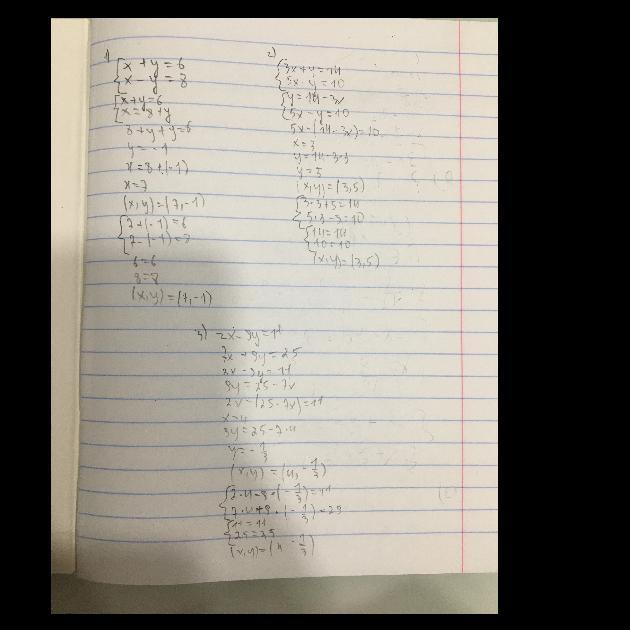 1)
x + y = 6
x - y = 8
x + y = 6
x = 8 + y
8 + y + y = 6
y = -1
x = 8 + (-1)
x = 7
(x, y) = (7, -1)
7 + (-1) = 6
7 - (-1) = 8
6 = 6
8 = 8
(x, y) = (7, -1)
2)
3x + y = 14
5x - y = 10
y = 14 - 3x
5x - y = 10
5x - (14 - 3x) = 10
x = 3
y = 14 - 3·3
y = 5
(x, y) = (3, 5)
3·3 + 5 = 14
14 = 14
10 = 10
(x, y) = (3, 5)
3) 2x - 9y = 11
7x + 9y = 25
2x - 9y = 11
9y = 25 - 7x
2x - (25 - 7x) = 11
x = 4
9y = 25 - 7·4
y = -1/3
(x, y) = (4, -1/3)
2·4 - 9·(-1/3) = 11
7·4 + 9·(-1/3) = 25
11 = 11
25 = 25
(x, y) = (4, -1/3)